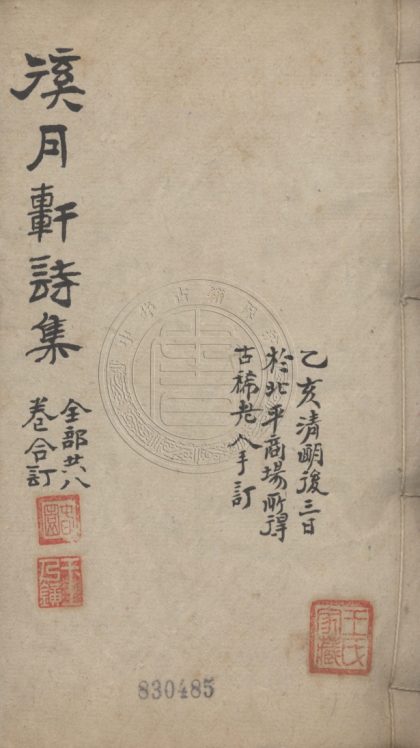 徯月軒詩集
全部共八
卷合訂
乙亥清明後三日
於北平商場所得
古稀老人手訂
王氏家藏
830485